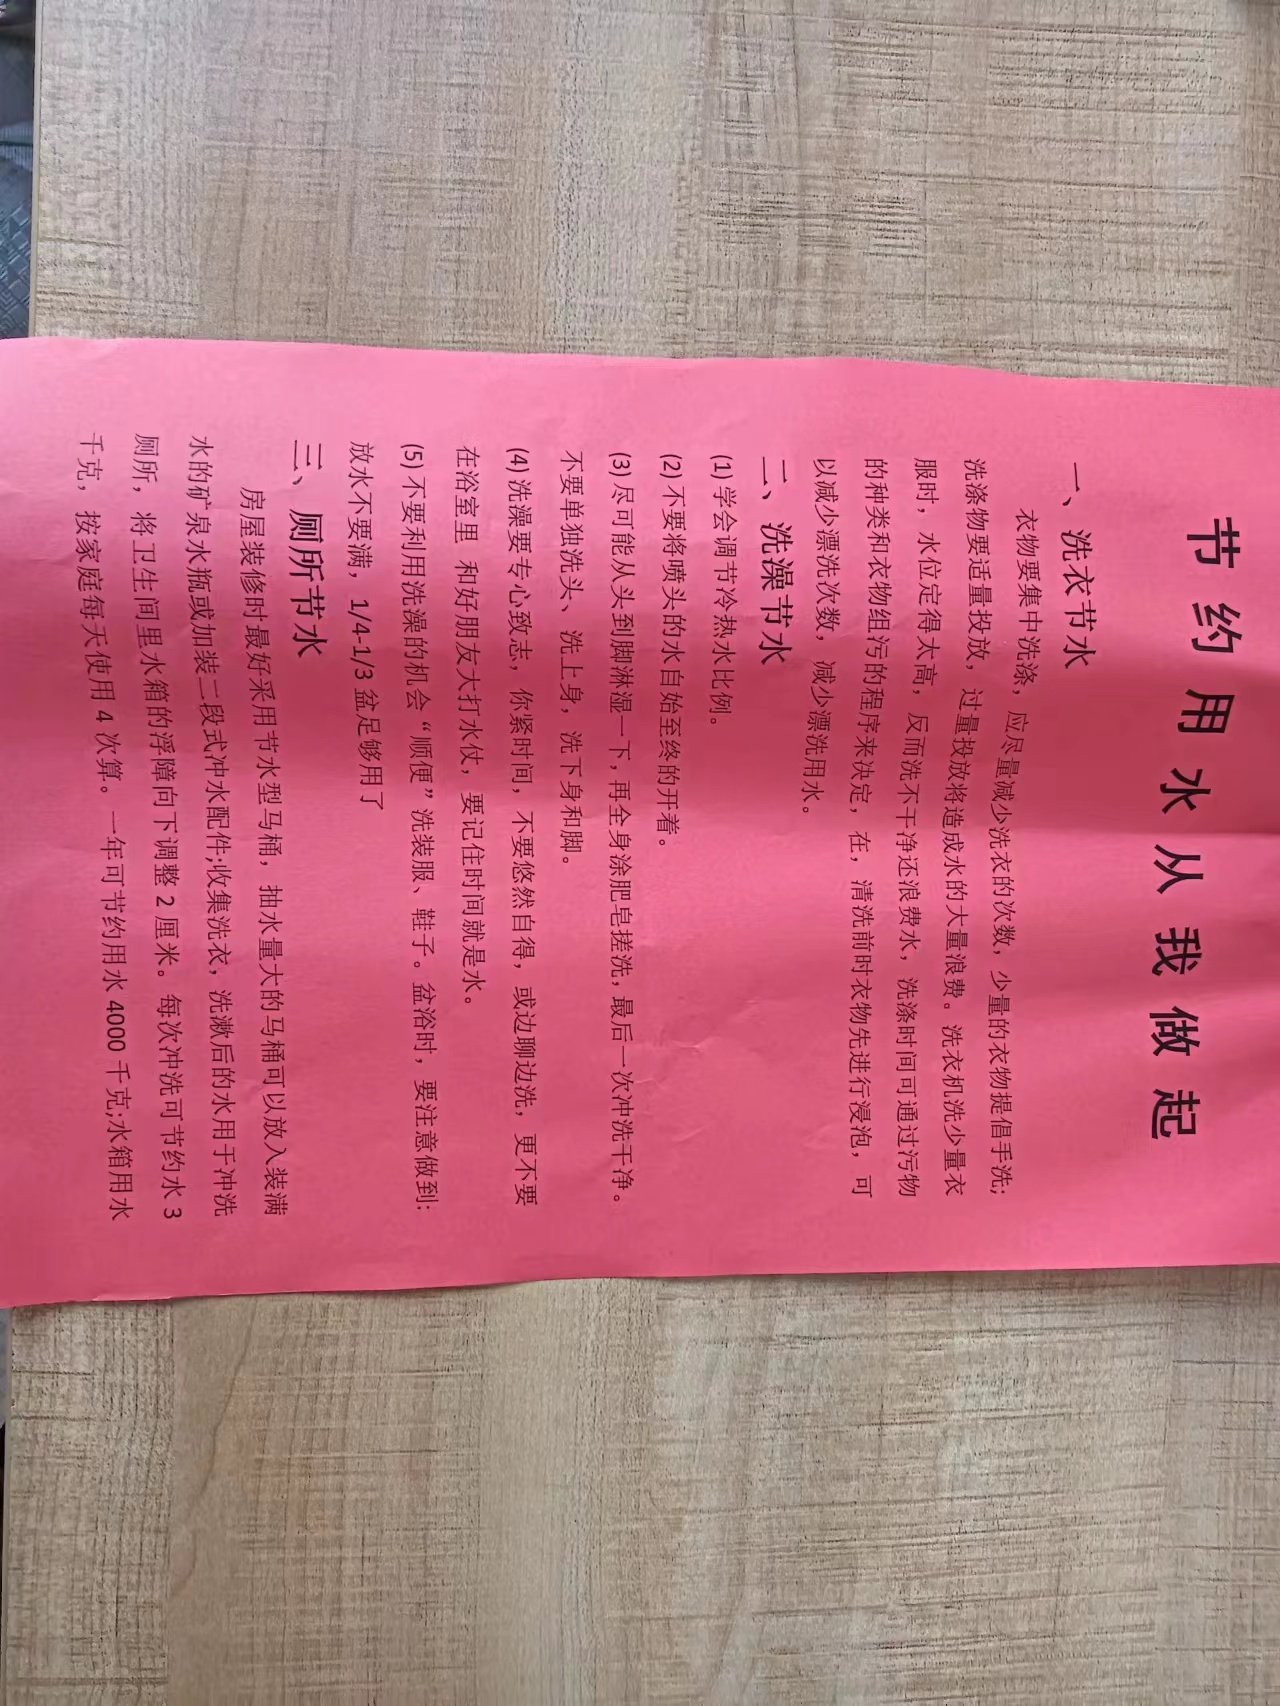 节约用水从我做起
一、洗衣节水
衣物要集中洗涤，应尽量减少洗衣的次数，少量的衣物提倡手洗;
洗涤物要适量投放，过量投放将造成水的大量浪费。洗衣机洗少量衣
服时，水位定得太高，反而洗不干净还浪费水，洗涤时间可通过污物
的种类和衣物组污的程序来决定，在，清洗前时衣物先进行浸泡，可
以减少漂洗次数，减少漂洗用水。
二、洗澡节水
(1) 学会调节冷热水比例。
(2) 不要将喷头的水自始至终的开着。
(3) 尽可能从头到脚淋湿一下，再全身涂肥皂搓洗，最后一次冲洗干净。
不要单独洗头、洗上身，洗下身和脚。
(4) 洗澡要专心致志，你紧时间，不要悠然自得，或边聊边洗，更不要
在浴室里 和好朋友大打水仗，要记住时间就是水。
(5) 不要利用洗澡的机会“顺便”洗装服、鞋子。盆浴时，要注意做到:
放水不要满，1/4-1/3 盆足够用了
三、厕所节水
房屋装修时最好采用节水型马桶，抽水量大的马桶可以放入装满
水的矿泉水瓶或加装二段式冲水配件;收集洗衣，洗漱后的水用于冲洗
厕所，将卫生间里水箱的浮障向下调整 2 厘米。每次冲洗可节约水 3
千克，按家庭每天使用 4 次算。一年可节约用水 4000 千克;水箱用水